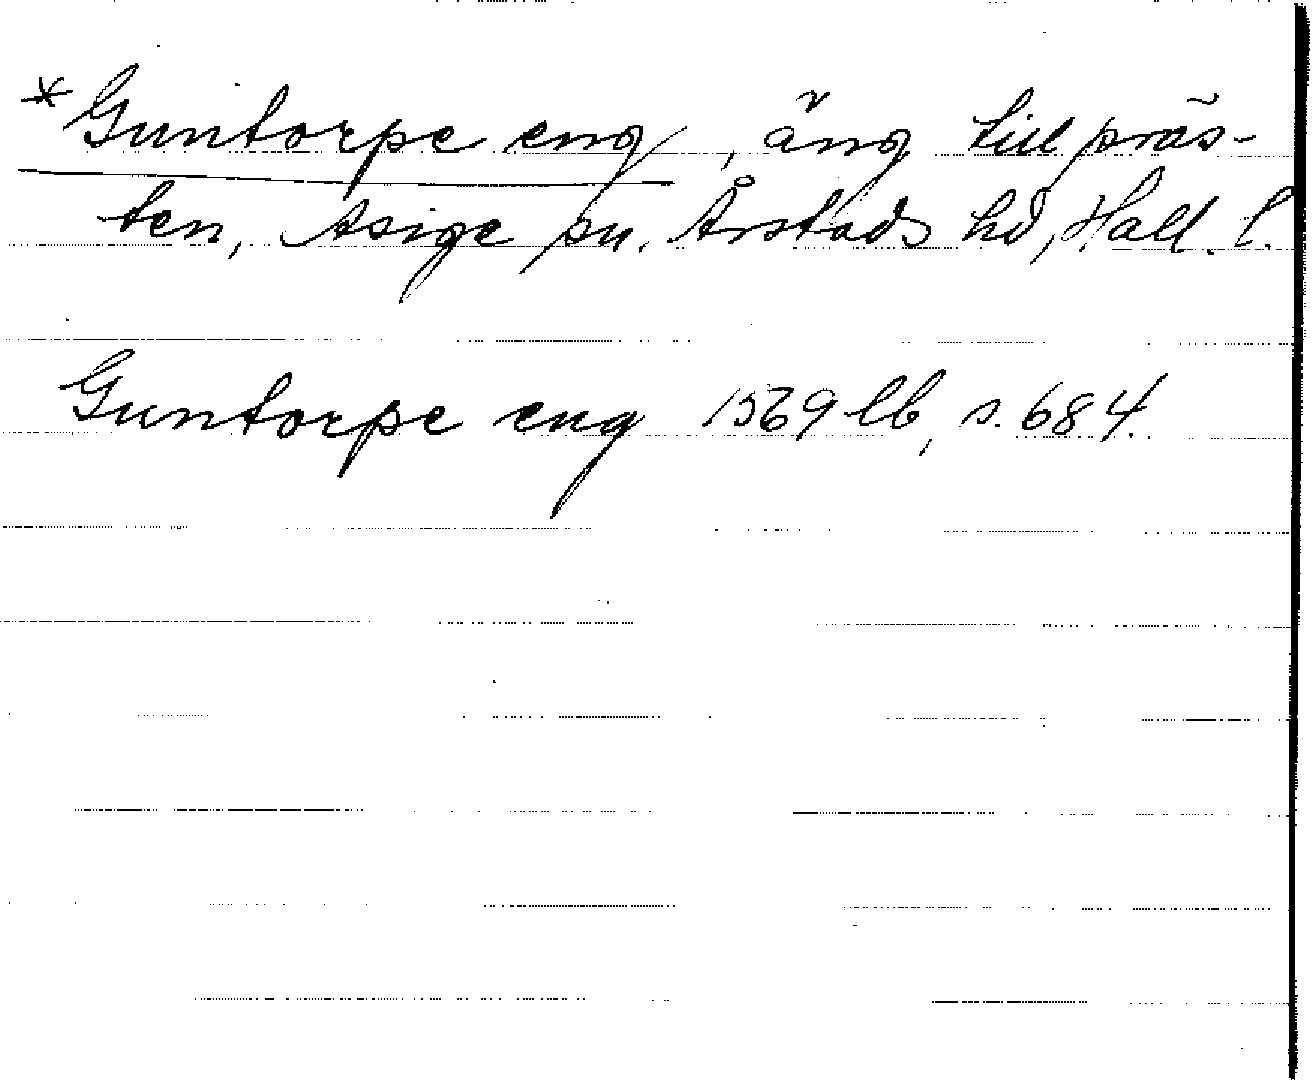 *Guntorpe eng, äng till präs-
ten, Asige sn. Årstads hd, Hall. l.
Guntorpe eng 1569 lb, s. 684.